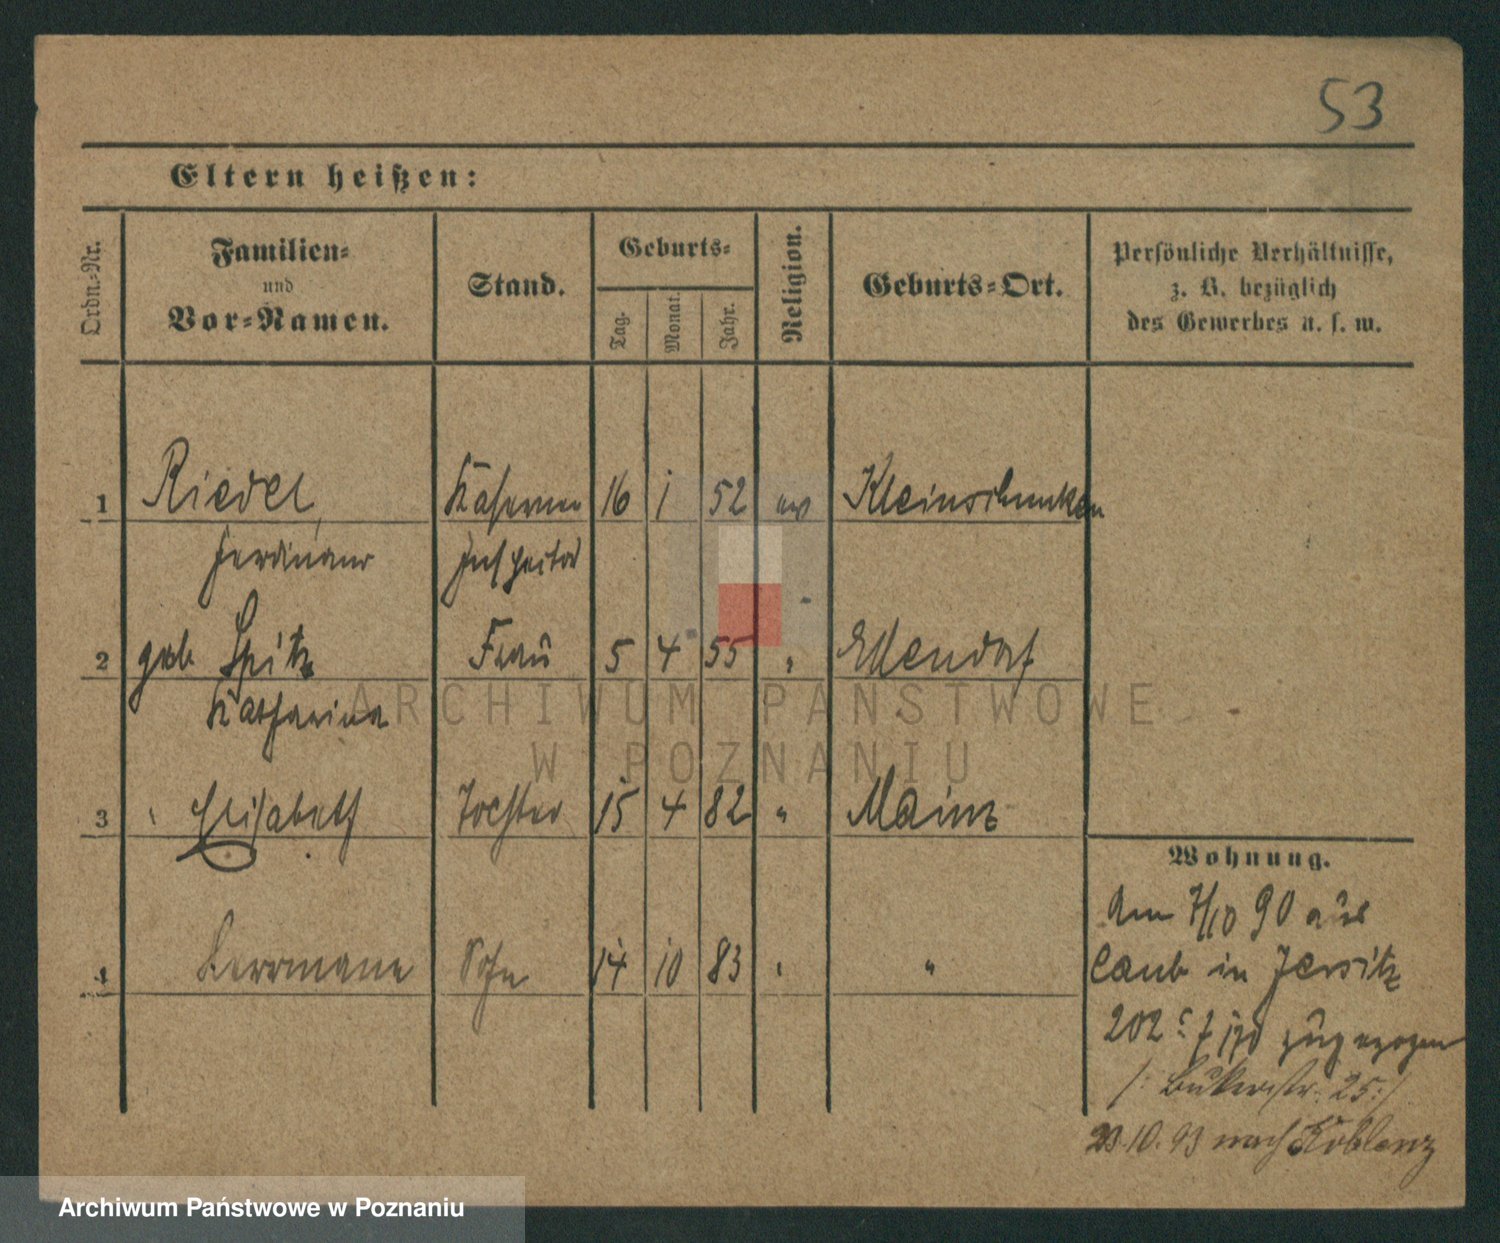 53
Eltern heißen:
Ordn.-Nr.
Familien-
und
Vor-Namen.
Stand.
Geburts-
Tag.
Monat.
Jahr.
Religion.
Geburts-Ort.
Persönliche Verhältnisse,
z. B. bezüglich
des Gewerbes u. s. w.
1 Riedel, Kasernen 16 1 52 ev
Ferdinand Inspektor
2 geb Spitz Frau 5 4 55 "
Katharina
3 " Elisabeth Tochter 15 4 82 " Mainz
4 Herrmann Sohn 14 10 83 " "
Wohnung.
Am 7/10 90 aus
Caub in Jersitz
202 zugezogen
/: Bukerstr. 25 :/
23.10.93 nach Koblenz
ARCHIWUM PAŃSTWOWE
W POZNANIU
Archiwum Państwowe w Poznaniu